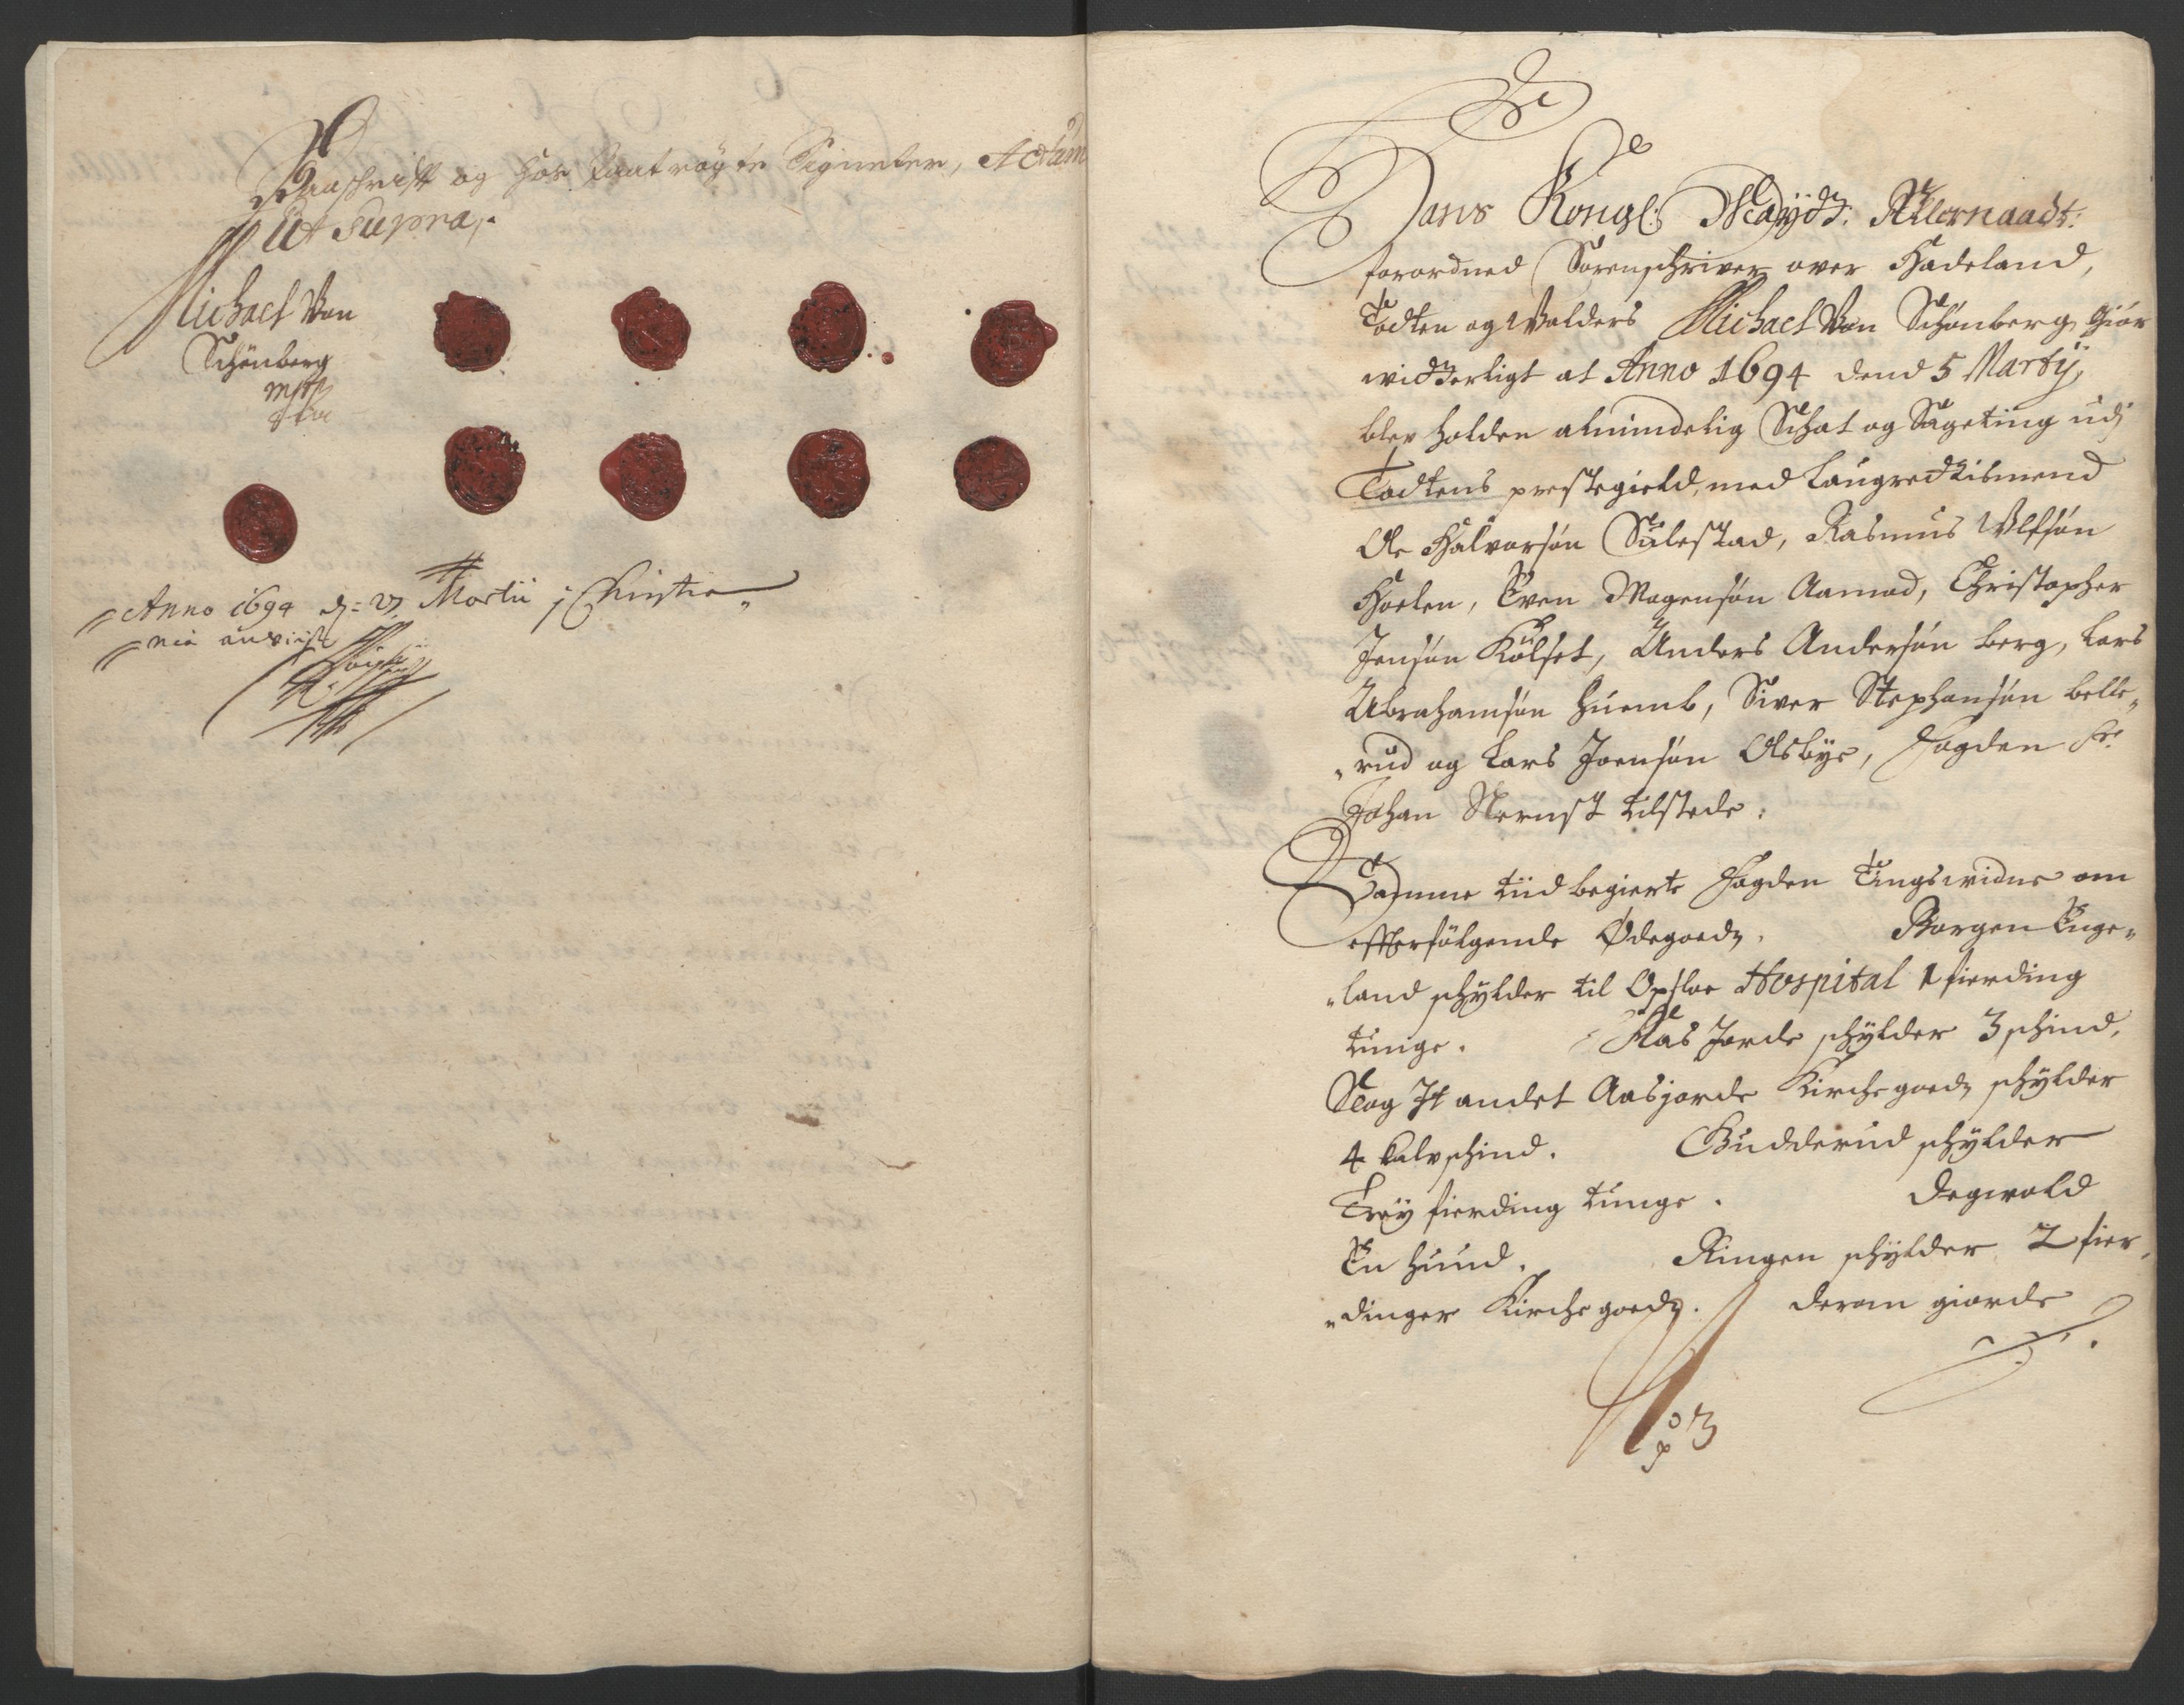 Haanschrift og hos Paatrögte Signeter, Actum
Ut supra,.
Michael Von
Schönberg
mpp
Anno 1694 d: 27 Martii j Christia„
nia anviist
Hans Kongl: Mayds: Allernaadt:
forordned Sorenschriver over Hadeland,
Todten og Walders Michael Von Schönberg giör
widterligt at Anno 1694 dend 5 Martij,
blev holden almindelig Schat og Sageting udj
Todtens prestegield, med Laugredtismend
Ole Halvorsön Sulestad, Rasmus Ulfsön
Hoelen, Even Mogensön Aamod, Christopher
Jensön Kölset, Anders Andersön berg, Lars
Abrahamsön huemb, Siver Stephansön belle„
„rud og Lars Joensön Olsbye, fogden Sr.
Johan Nernst tilstede:
Samme tiid begierte fogden Tingswidne om
effterfölgende Ödegoedz. Borgen Enge„
„land schylder til Opsloe Hospital 1 fierding
tunge. Aas Jorde schylder 3 schind,
Nog It andet Aasjorde Kirchegoedz schylder
4 kalvschind. Budderud schylder
Trey fierding tunge. Degwold
En huud. Ringen schylder 2 fier„
„dinger Kirchegoedz. derom giorde